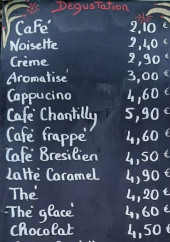 Degustation
Café 2,10 €
Noisette 2,40 €
Crème 2,90 €
Aromatisé 3,00 €
Cappucino 4,60 €
Café Chantilly 5,90 €
Café frappé 4,60 €
Café Bresilien 4,50 €
Latté Caramel 4,90 €
Thé 4,20 €
Thé glacé 4,60 €
Chocolat 4,50 €